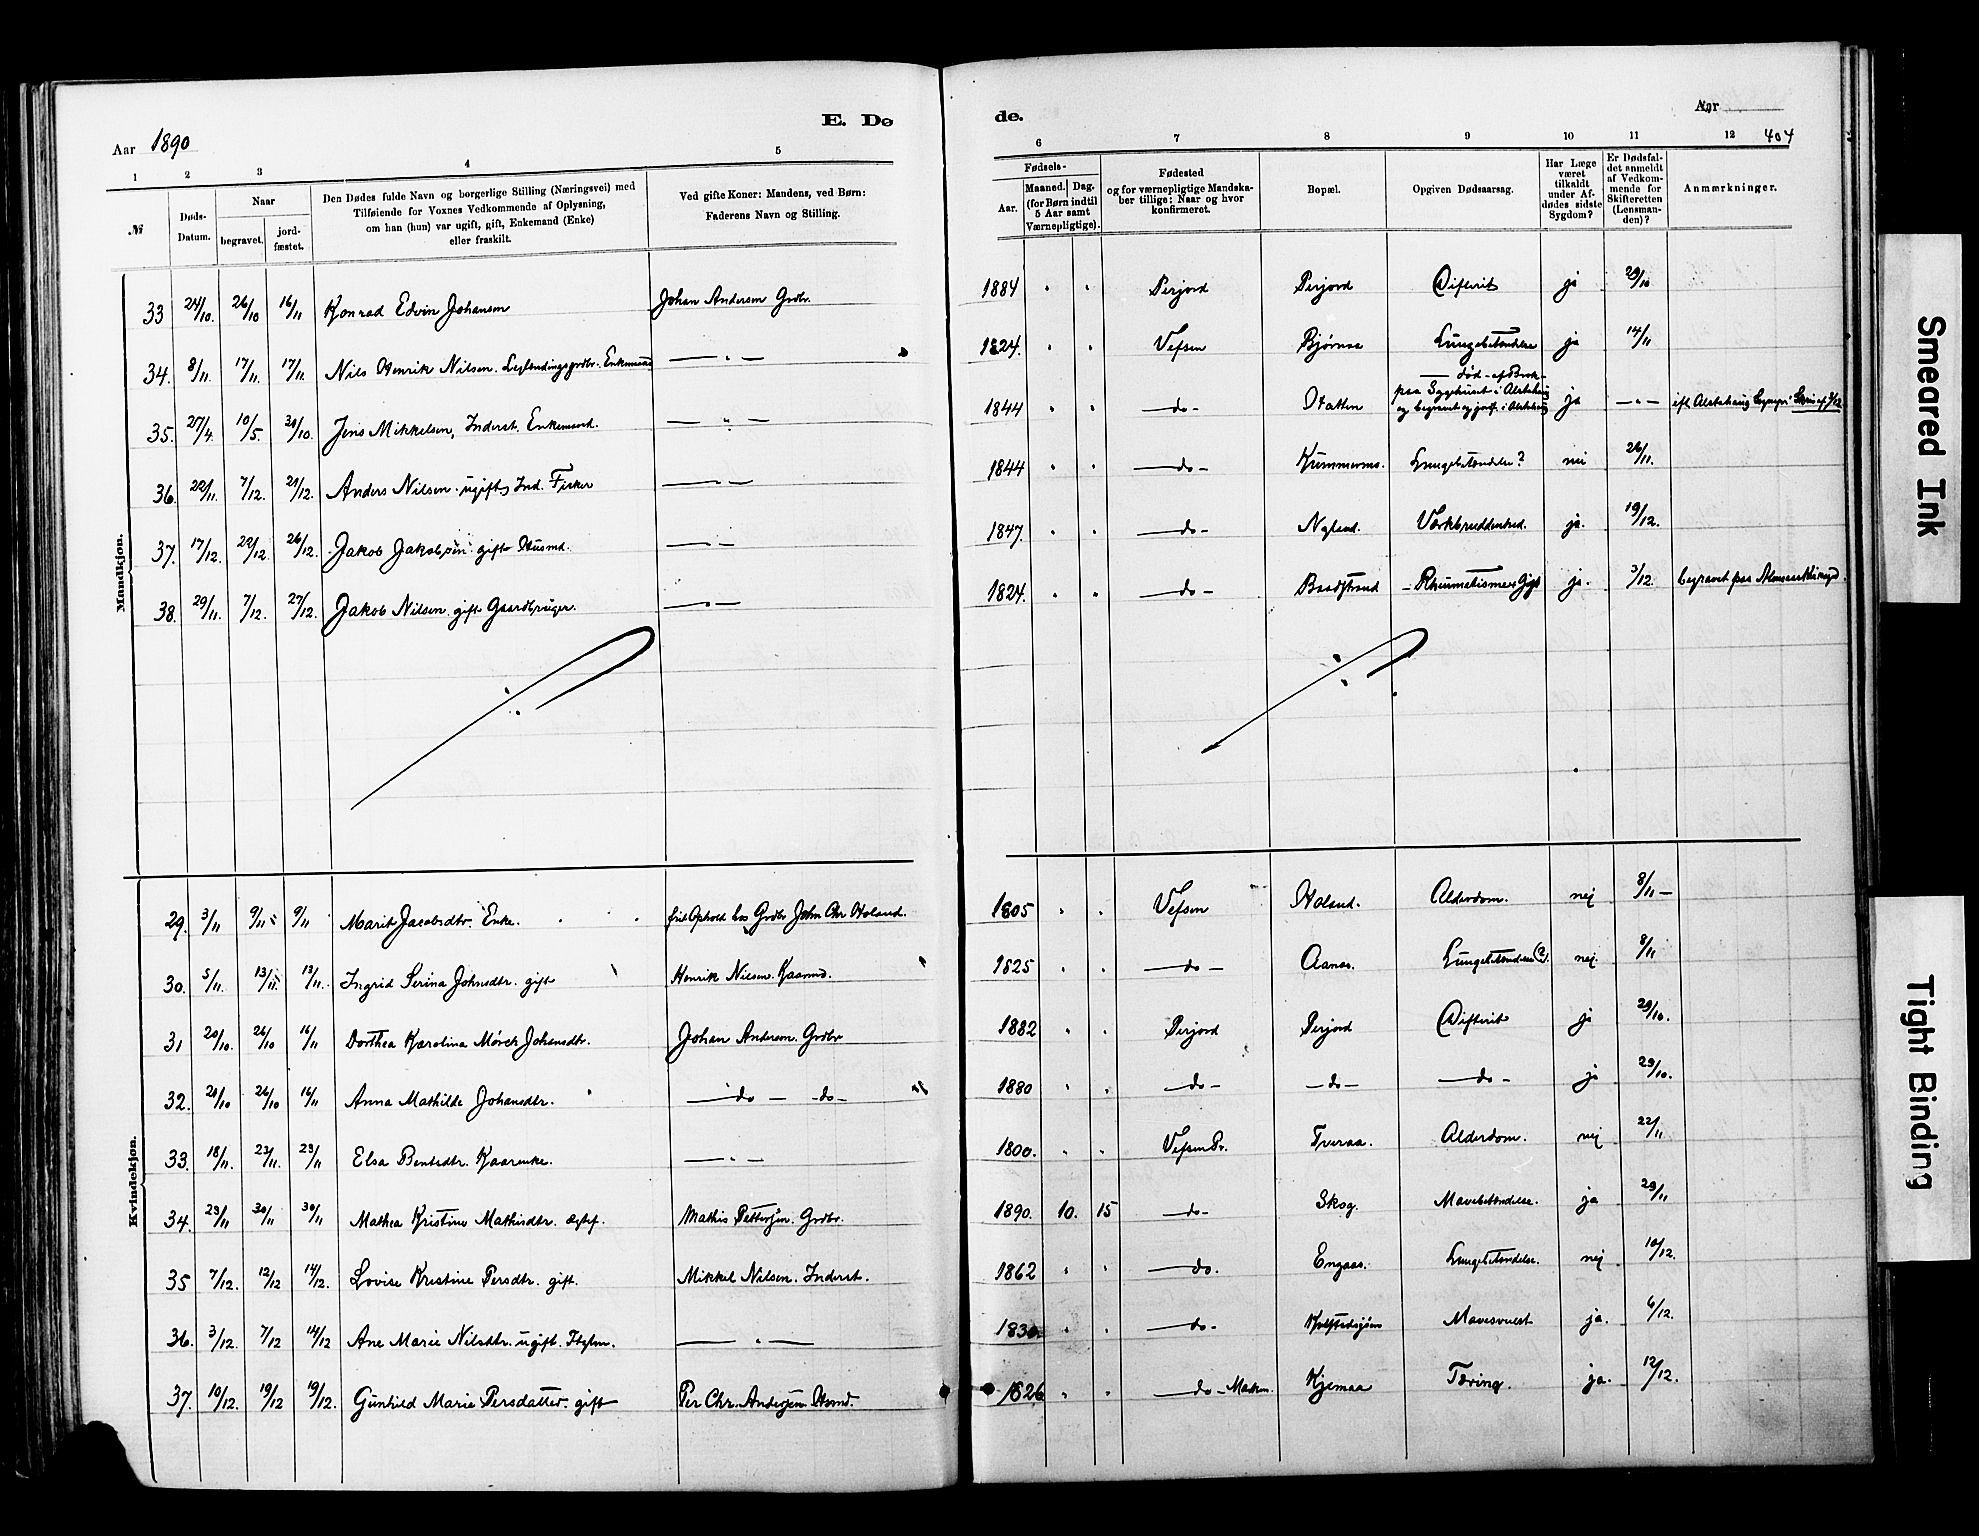 E. Dø de.
Aar 1890
Aar
404
1 2 3 4 5 6 7 8 9 10 11 12
№
Døds-Datum.
Naar
begravet.
jord-fæstet.
Den Dødes fulde Navn og borgerlige Stilling (Næringsvei) med
Tilføiende for Voxnes Vedkommende af Oplysning,
om han (hun) var ugift, gift, Enkemand (Enke)
eller fraskilt.
Ved gifte Koner: Mandens, ved Børn:
Faderens Navn og Stilling.
Fødsels-
Aar.
Maaned. Dag.
(for Børn indtil
5 Aar samt
Værnepligtige).
Fødested
og for værnepligtige Mandska-
ber tillige: Naar og hvor
konfirmeret.
Bopæl.
Opgiven Dødsaarsag.
Har Læge
været
tilkaldt
under Af-
dødes sidste
Sygdom?
Er Dødsfal-
det anmeldt
af Vedkom-
mende for
Skifteretten
(Lensman-
den)?
Anmærkninger.
Mandkjøn.
33 24/10. 26/10 16/11 Konrad Edvin Johansen Johan Andersen Grdbr. 1884 " " Perjord Perjord Difterit ja 29/10
34. 8/11. 17/11. 17/11. Nils Henrik Nilsen. Enkemand — " — 1824. " " Vefsen Bjørnaa Lungebetændelse ja 14/11
35. 27/4. 10/5. 31/10. Jens Mikkelsen, Inderst. Enkemand. — " — 1844 " " — do — Hatten død af Brok
paa Sygehuset i Alstahaug
og begravet og jordf. i Alstahaug ja — " —
36. 22/11. 7/12. 21/12. Anders Nilsen ugift Ind. Fisker — " — 1844 " " — do — Lungebetændelse? nei 26/11.
37. 17/12. 22/12. 26/12. Jakob Jakobsen gift Husmd. — " — 1847. " " — do — Nyland Værkbruddenhed. ja. 19/12.
38. 29/11. 7/12. 27/12. Jakob Nilsen gift Gaardbruger. — " — 1824. " " — do — Baadstrand Rheumatisme Gigt ja. 3/12.
Kvindekjøn.
29. 3/11 9/11 9/11 Marit Jacobsdtr. Enke. frit Ophold hos Grdbr John Chr Holand. 1805 " " Vefsen Holand. Alderdom. nej 8/11 —
30. 5/11. 13/11. 13/11. Ingrid Serina Johnsdtr. gift Henrik Nilsen. Kaarmd. 1825 " " — do — Aanes. Lungebetændelse (?). nej. 8/11
31 20/10. 26/10 16/11 Dorthea Karolina Mörck Johansdtr. Johan Andersen. Grdbr 1882 " " Perjord Perjord Difterit ja 29/10.
32. 21/10 26/10 16/11 Anna Mathilde Johansdtr. — do — do — 1880 " " — do — — do — — do — ja 29/10.
33. 18/11. 23/11. 23/11 Elsa Bentsdtr. Kaarenke. — " — 1800. " " Vefsen Pr. Tveraa. Alderdom. nej 22/11
34. 23/11 30/11 30/11 Mathea Kristine Mathisdtr. ægtef. Mathis Pettersen. Grdbr. 1890. 10. 15 — do — Skog. Mavebetændelse. ja 29/11
35 7/12. 12/12 14/12. Lovise Kristine Persdtr. gift. Mikkel Nilsen. Inderst. 1862 " " — do. Engaas. Lungebetændelse. nej 10/12.
36. 3/12. 7/12 14/12 Ane Marie Nilsdtr. ugift. — " — 1830. " " — do — Mavesvulst ja. 6/12.
37. 10/12. 19/12 19/12. Gunhild Marie Persdatter. gift Per Chr. Andersen Husmd. 1826 " " — do — Kjemaa Tæring. ja. 12/12.
Smeared Ink
Tight Binding